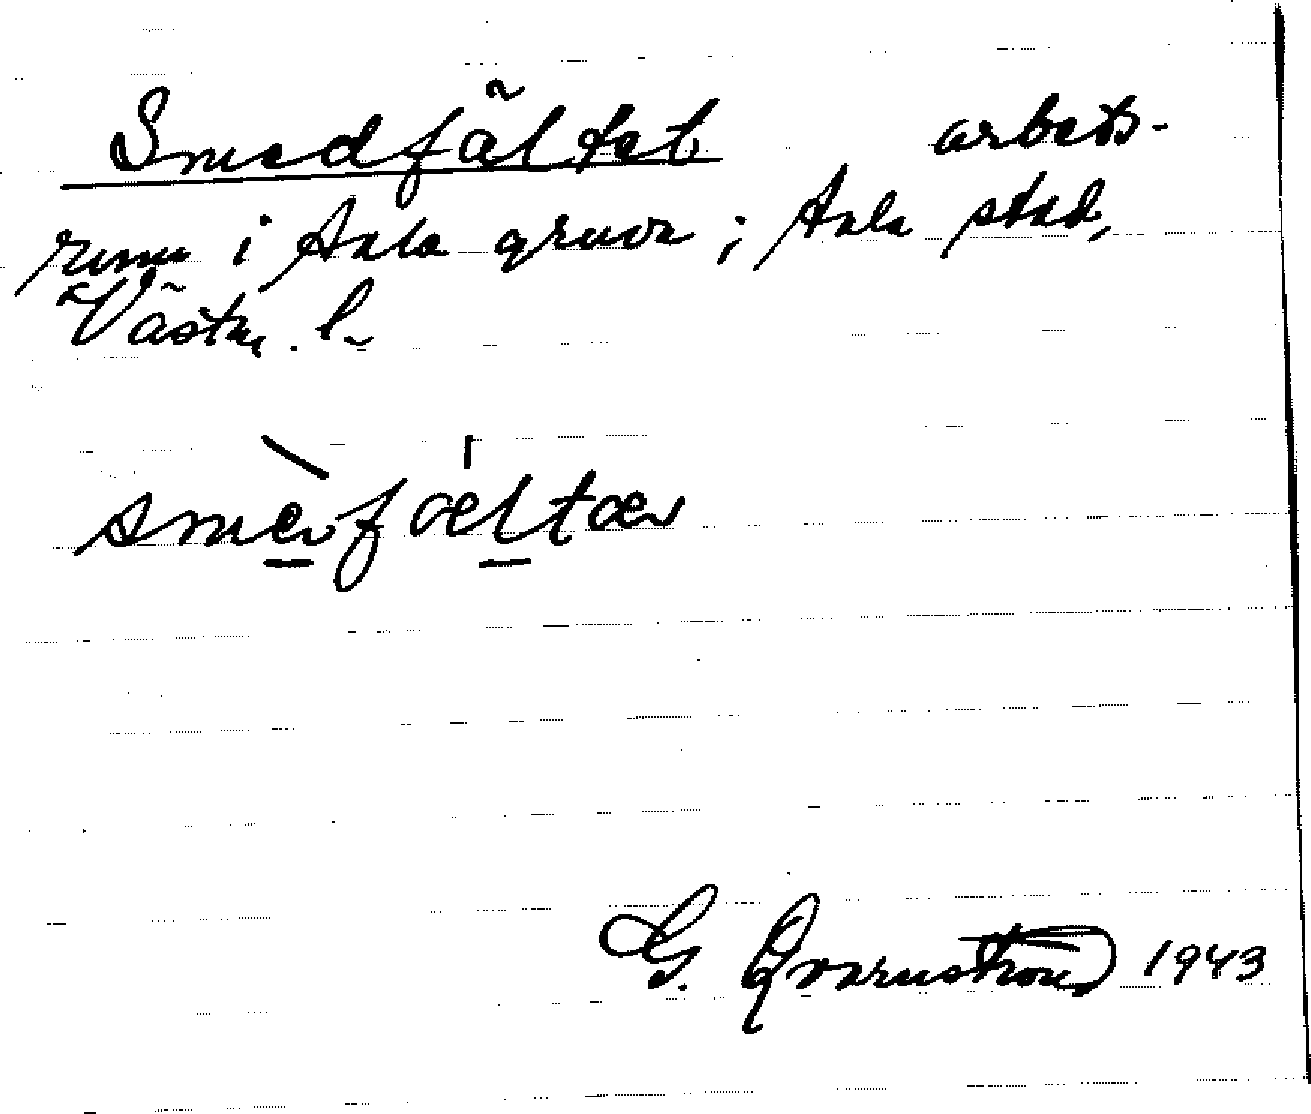 Smedfältet arbets-
rum i Sala gruva; Sala stad,
Västm. l.
smèfæ̀ltæ
G. Qvarnström 1943